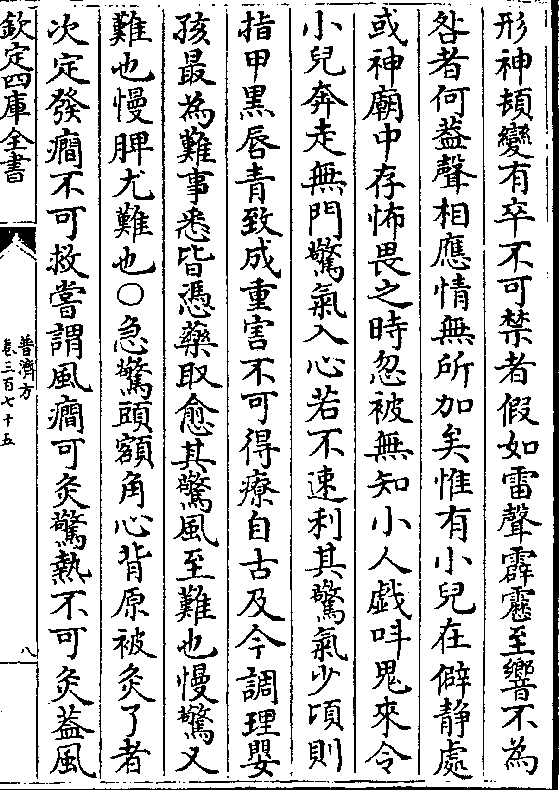 形神頓變有卒不可禁者假如雷聲霹靂至響不為
咎者何葢聲相應情無所加矣惟有小兒在僻静處
或神廟中存怖畏之時忽被無知小人戯呌鬼來令
小兒奔走無門驚氣入心若不速利其驚氣少頃則
指甲黒唇青致成重害不可得療自古及今調理嬰
孩最為難事悉皆憑藥取愈其驚風至難也慢驚又
難也慢脾尤難也○急驚頭額角心背原被灸了者
次定發癎不可救嘗謂風癎可灸驚熱不可灸葢風
欽定四庫全書
普濟方
卷三百七十五
八